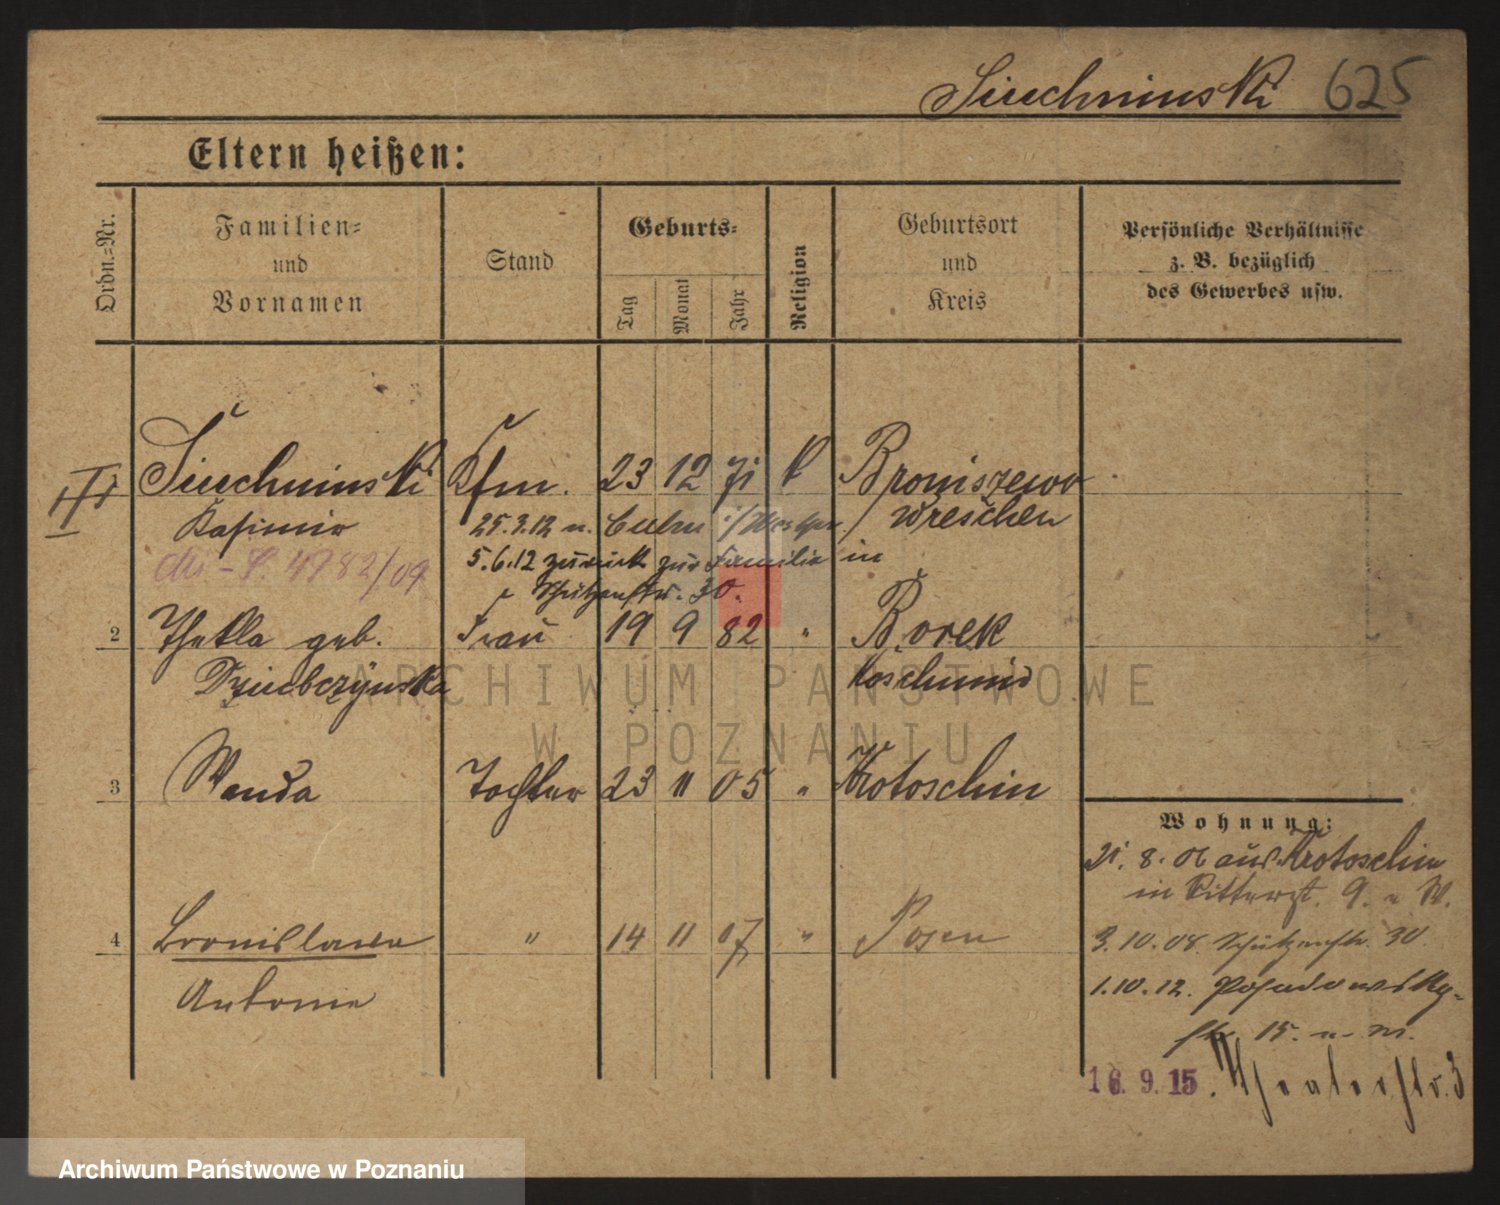 Siuchninski 625
Eltern heißen:
Ordn.-Nr.
Familien-
und
Vornamen
Stand
Geburts-
Tag
Monat
Jahr
Religion
Geburtsort
und
Kreis
Persönliche Verhältnisse
z. B. bezüglich
des Gewerbes usw.
Siuchninski Kfm. 23 12 71 k Broniszewo
Kasimir 25.3.12 n. Culm Wreschen
4782/09 5.6.12 zurück zur Familie in
Schützenstr. 30.
2 Thekla geb. Frau 19 9 82 " Borek
Dziubczynska Koschmin
3 Wanda Tochter 23 11 05 " Krotoschin
Wohnung:
21. 8. 06 aus Krotoschin
in Ritterst. 9. u W.
4 Bronislawa " 14 11 07 " Posen
3.10.08. Schützenstr. 30.
Antonie
1.10.12. Posadowsky-
str. 15. u. W.
16.9.15. Theaterstr. 3
ARCHIWUM PAŃSTWOWE
W POZNANIU
Archiwum Państwowe w Poznaniu